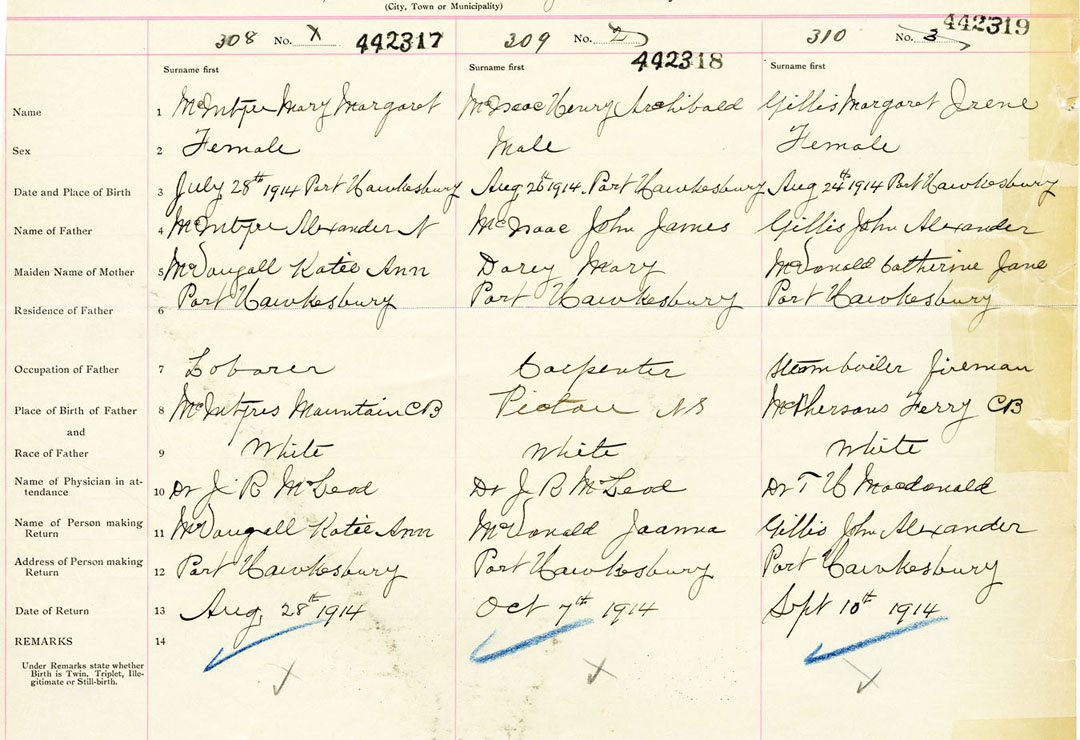 (City, Town or Municipality)
308 No. 1 442317 309 No. 2 442318 310 No. 3 442319
Surname first Surname first Surname first
Name 1 McIntyre Mary Margaret McIsaac Henry Archibald Gillis Margaret Irene
Sex 2 Female Male Female
Date and Place of Birth 3 July 28th 1914 Port Hawkesbury Aug 26 1914. Port Hawkesbury Aug 24th 1914 Port Hawkesbury
Name of Father 4 McIntyre Alexander N McIsaac John James Gillis John Alexander
Maiden Name of Mother 5 McDougall Katie Ann Dorey Mary McDonald Catherine Jane
Residence of Father 6 Port Hawkesbury Port Hawkesbury Port Hawkesbury
Occupation of Father 7 Laborer Carpenter Steamboiler fireman
Place of Birth of Father 8 McIntyres Mountain CB Pictou NS McPhersons Ferry CB
and
Race of Father 9 White White White
Name of Physician in at-
tendance 10 Dr J B McLeod Dr J B McLeod Dr T H Macdonald
Name of Person making
Return 11 McDougall Katie Ann McDonald Joanna Gillis John Alexander
Address of Person making
Return 12 Port Hawkesbury Port Hawkesbury Port Hawkesbury
Date of Return 13 Aug, 28th 1914 Oct 7th 1914 Sept 10th 1914
REMARKS 14
Under Remarks state whether
Birth is Twin, Triplet, Ille-
gitimate or Still-birth.